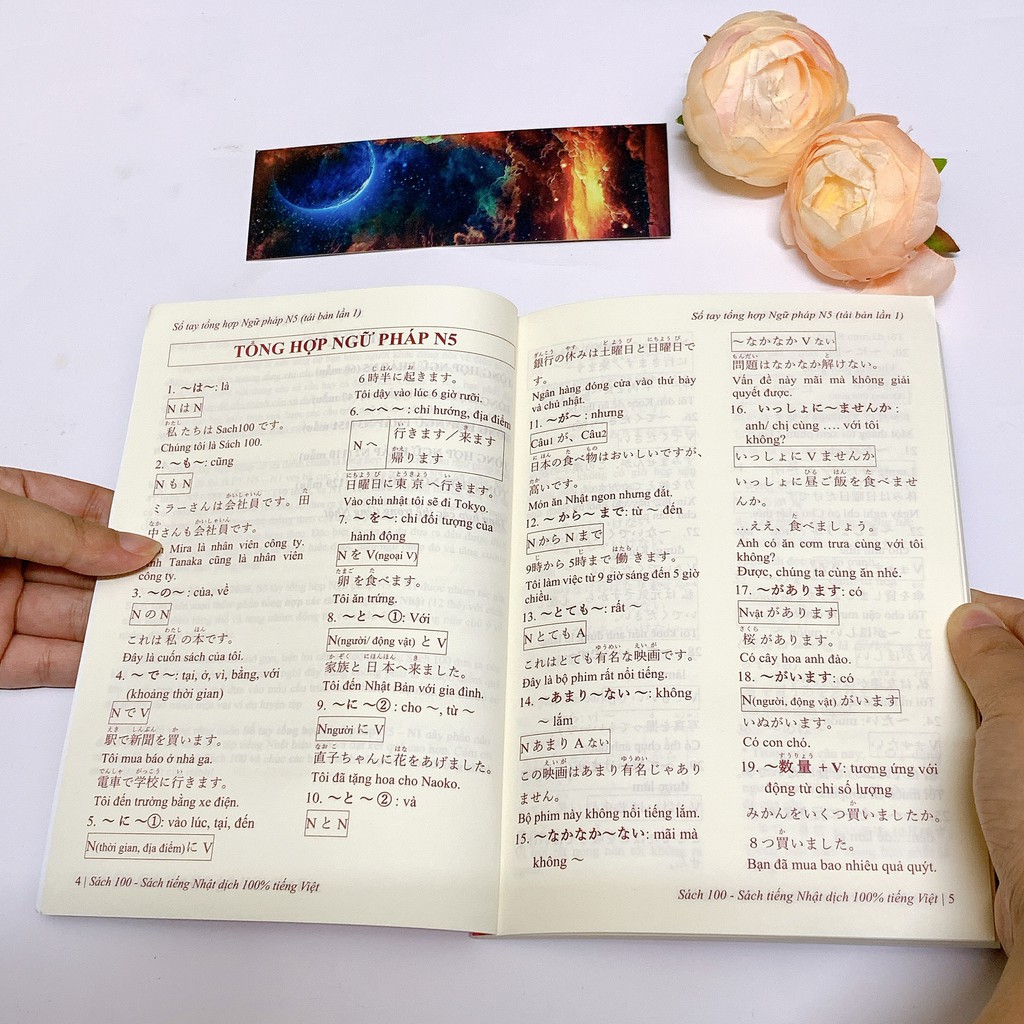 Sổ tay tổng hợp Ngữ pháp N5 (tái bản lần 1)
TỔNG HỢP NGỮ PHÁP N5
1. ～は～: là
N は N
私たちは Sach100 です。
Chúng tôi là Sách 100.
2. ～も～: cũng
N も N
ミラーさんは会社員です。田
中さんも会社員です。
Mira là nhân viên công ty.
Tanaka cũng là nhân viên
công ty.
3. ～の～: của, về
N の N
これは私の本です。
Đây là cuốn sách của tôi.
4. ～で～: tại, ở, vì, bằng, với
(khoảng thời gian)
N で V
駅で新聞を買います。
Tôi mua báo ở nhà ga.
電車で学校に行きます。
Tôi đến trường bằng xe điện.
5. ～に～①: vào lúc, tại, đến
N(thời gian, địa điểm) に V
6時半に起きます。
Tôi dậy vào lúc 6 giờ rưỡi.
6. ～へ～: chỉ hướng, địa điểm
N へ 行きます／来ます
帰ります
日曜日に東京へ行きます。
Vào chủ nhật tôi sẽ đi Tokyo.
7. ～を～: chỉ đối tượng của
hành động
N を V(ngoại V)
卵を食べます。
Tôi ăn trứng.
8. ～と～①: Với
N(người/ động vật) と V
家族と日本へ来ました。
Tôi đến Nhật Bản với gia đình.
9. ～に～②: cho ～, từ ～
Nngười に V
直子ちゃんに花をあげました。
Tôi đã tặng hoa cho Naoko.
10. ～と～②: và
N と N
4 | Sách 100 - Sách tiếng Nhật dịch 100% tiếng Việt
Sổ tay tổng hợp Ngữ pháp N5 (tái bản lần 1)
銀行の休みは土曜日と日曜日で
す。
Ngân hàng đóng cửa vào thứ bảy
và chủ nhật.
11. ～が～: nhưng
Câu1 が、Câu2
日本の食べ物はおいしいですが、
高いです。
Món ăn Nhật ngon nhưng đắt.
12. ～から～まで: từ ～ đến
N から N まで
9時から5時まで働きます。
Tôi làm việc từ 9 giờ sáng đến 5 giờ
chiều.
13. ～とても～: rất ～
N とても A
これはとても有名な映画です。
Đây là bộ phim rất nổi tiếng.
14. ～あまり～ない～: không
～ lắm
N あまり A ない
この映画はあまり有名じゃあり
ません。
Bộ phim này không nổi tiếng lắm.
15. ～なかなか～ない: mãi mà
không ～
～なかなか V ない
問題はなかなか解けない。
Vấn đề này mãi mà không giải
quyết được.
16. いっしょに～ませんか:
anh/ chị cùng …. với tôi
không?
いっしょに V ませんか
いっしょに昼ご飯を食べませ
んか。
…ええ、食べましょう。
Anh có ăn cơm trưa cùng với tôi
không?
Được, chúng ta cùng ăn nhé.
17. ～があります: có
Nvật があります
桜があります。
Có cây hoa anh đào.
18. ～がいます: có
N(người, động vật) がいます
いぬがいます。
Có con chó.
19. ～数量 + V: tương ứng với
động từ chỉ số lượng
みかんをいくつ買いましたか。
８つ買いました。
Bạn đã mua bao nhiêu quả quýt.
Sách 100 - Sách tiếng Nhật dịch 100% tiếng Việt | 5